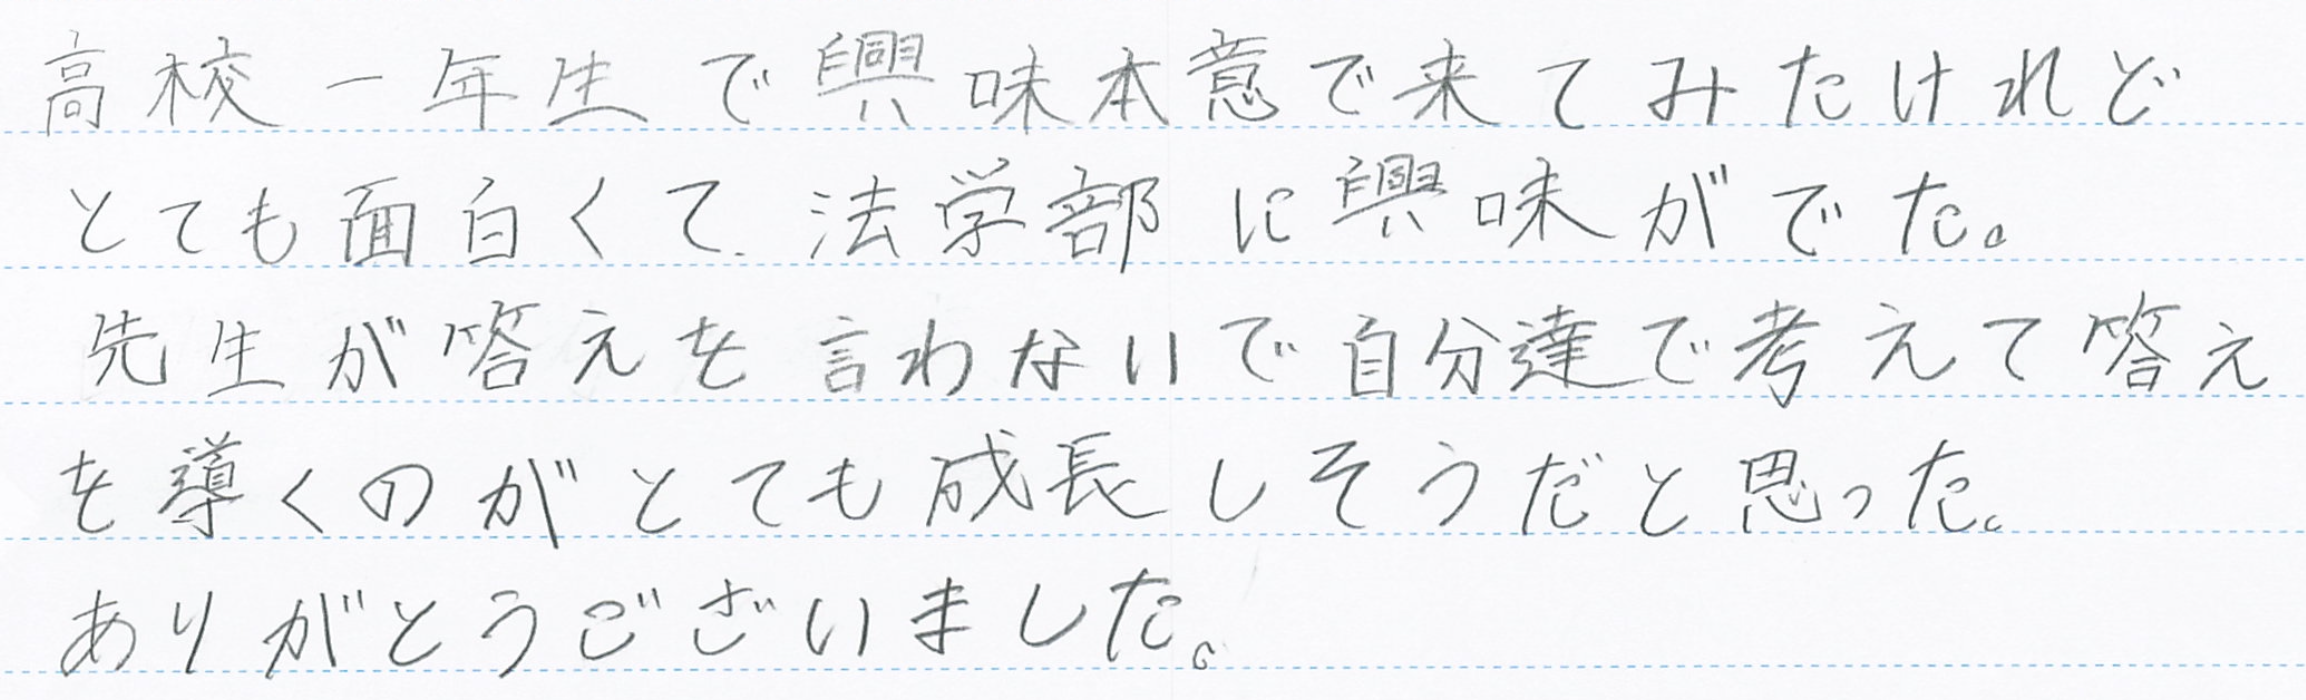 高校一年生で興味本意で来てみたけれど
とても面白くて、法学部に興味がでた。
先生が答えを言わないで自分達で考えて答え
を導くのがとても成長しそうだと思った。
ありがとうございました。